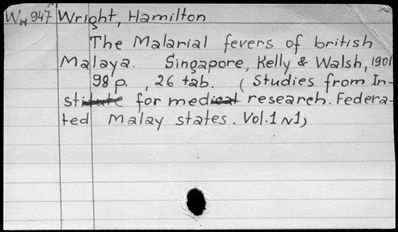 WH 947 Wright, Hamilton
The Malarial fevers of british
Malaya. Singapore, Kelly & Walsh, 1901
98 p., 26 tab. (Studies from In-
stitute for medical research. Federa-
ted Malay states. Vol.1 N1)